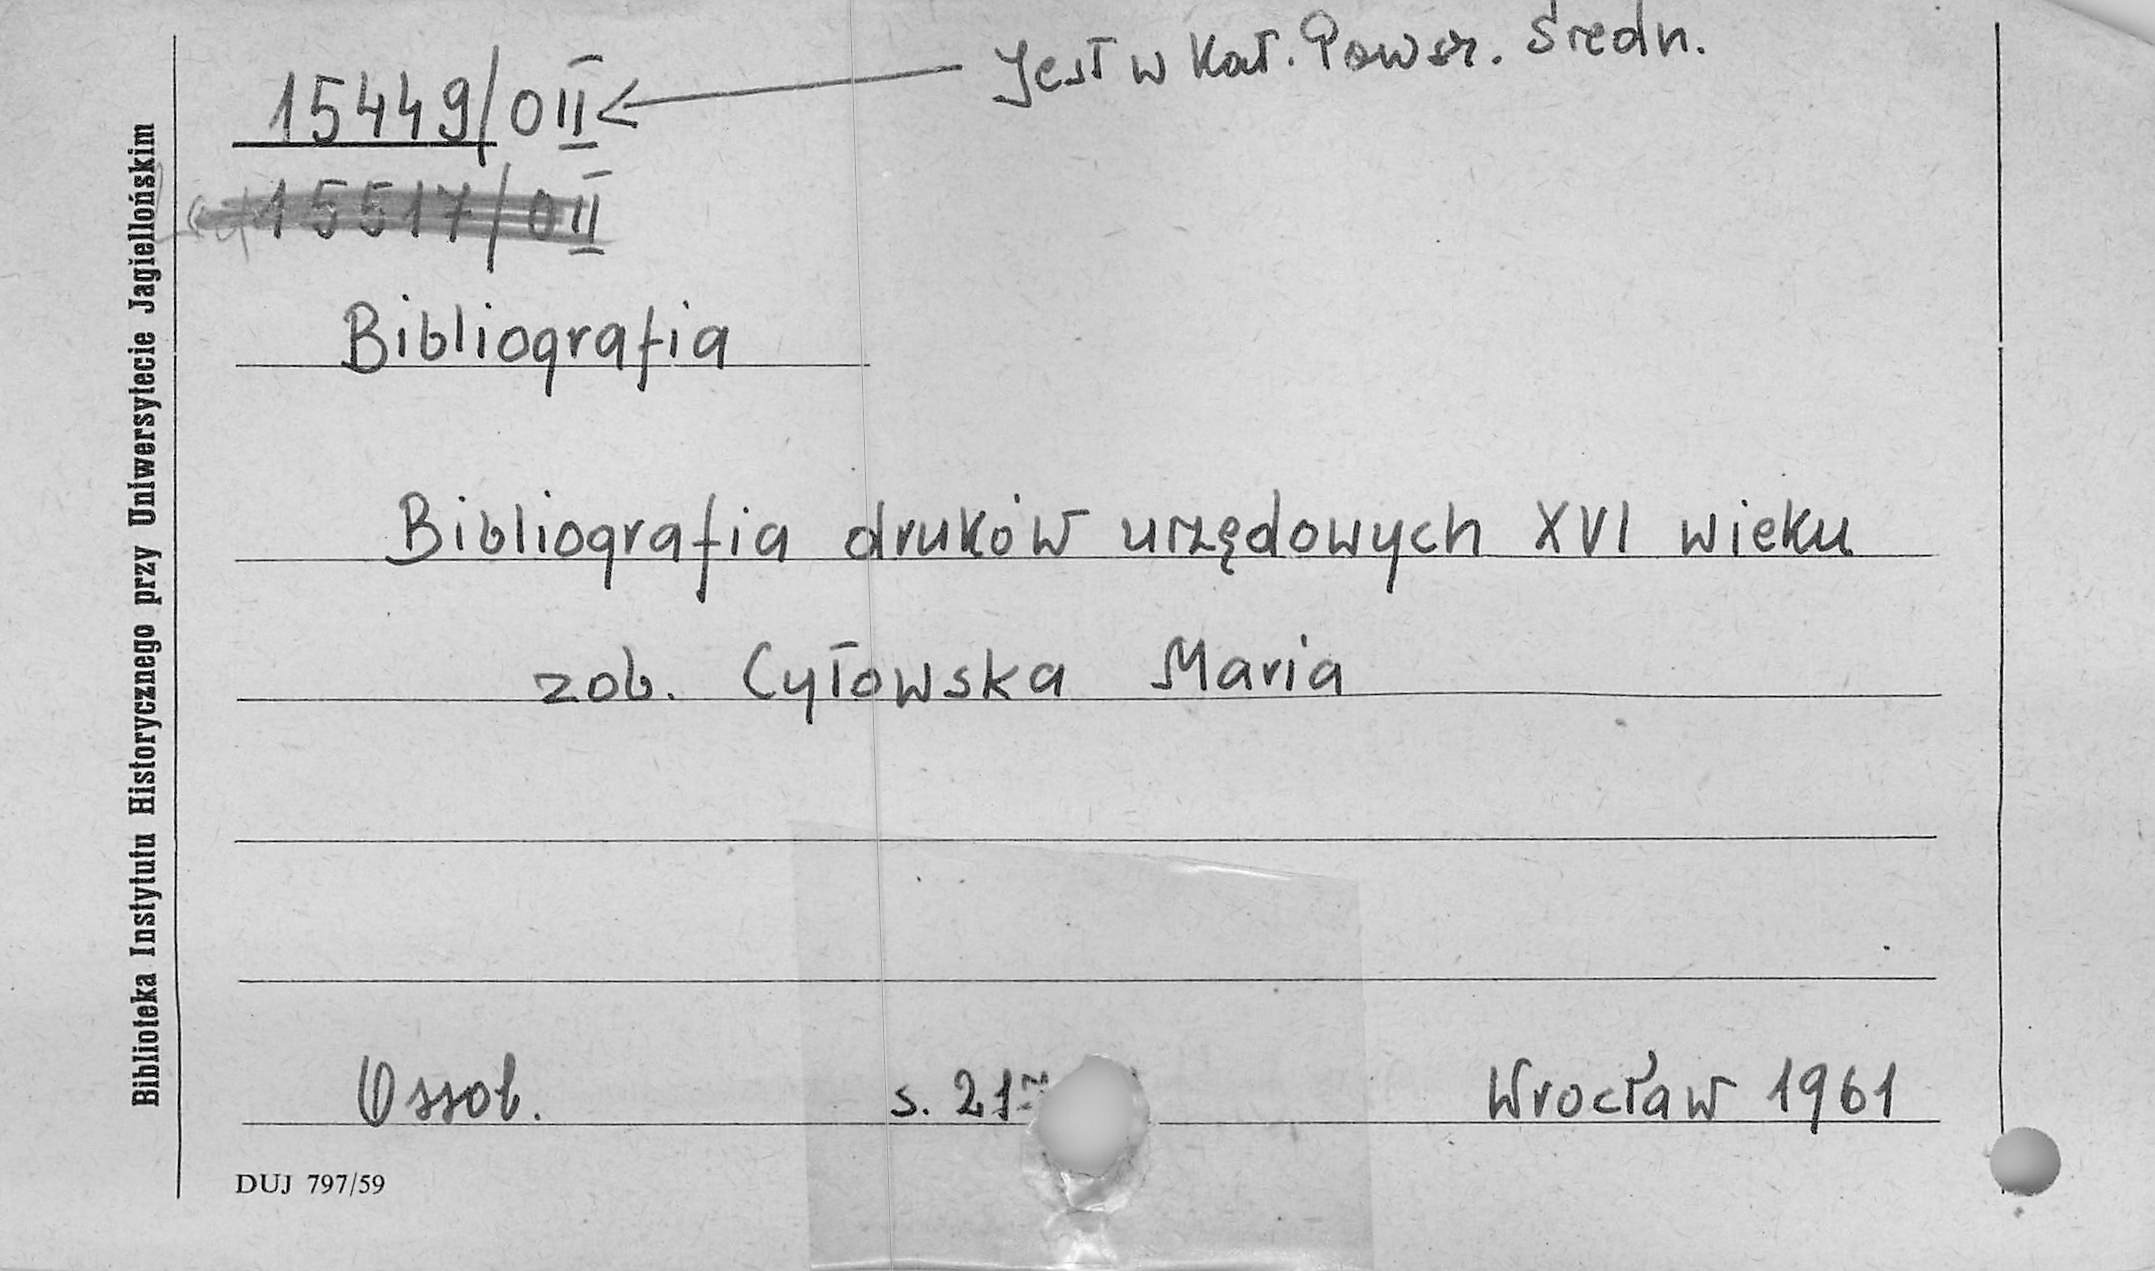 15449/O II ← Jest w Kat. Powsz. Średn.
15517/O II
Bibliografia
Bibliografia druków urzędowych XVI wieku
zob. Cytowska Maria
Ossol. s. 21 Wrocław 1961
DUJ 797/59
Biblioteka Instytutu Historycznego przy Uniwersytecie Jagiellońskim